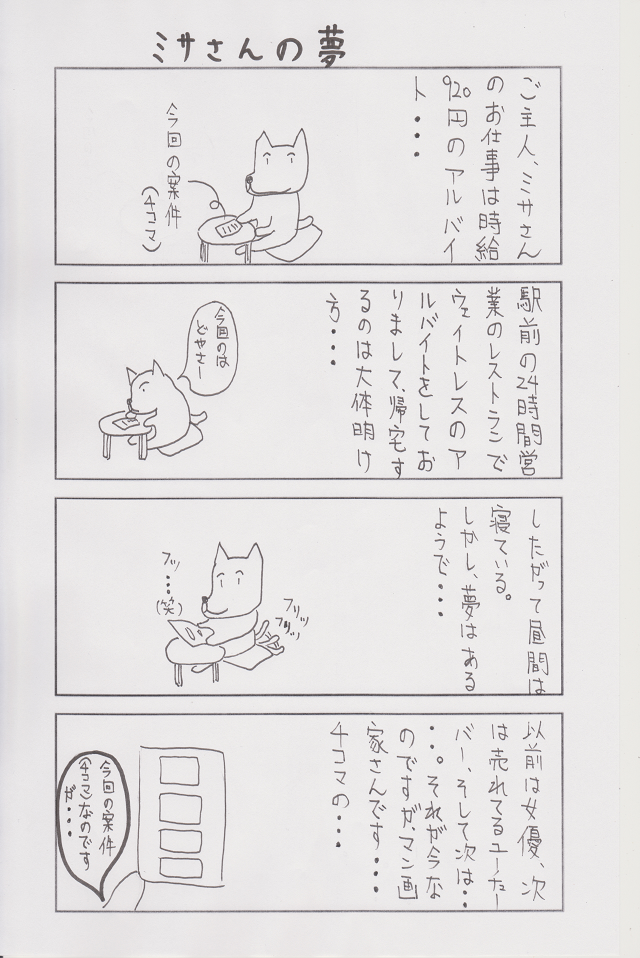 ミサさんの夢
ご主人、ミサさん
のお仕事は時給
920円のアルバイ
ト・・・
今回の案件
(4コマ)
駅前の24時間営
業のレストランで
ウェイトレスのア
ルバイトをしてお
りまして、帰宅す
るのは大体明け
方・・・
今回のは
どやさー
したがって昼間は
寝ている。
しかし、夢はある
ようで・・・
フッ
・・・
(笑)
フリッ
フリッ
フリッ
以前は女優、次
は売れてるユーチュー
バー、そして次は・・
・・。それが今な
のですが、マンガ
家さんです・・・
4コマの・・・
今回の案件
(4コマ)なのです
が・・・